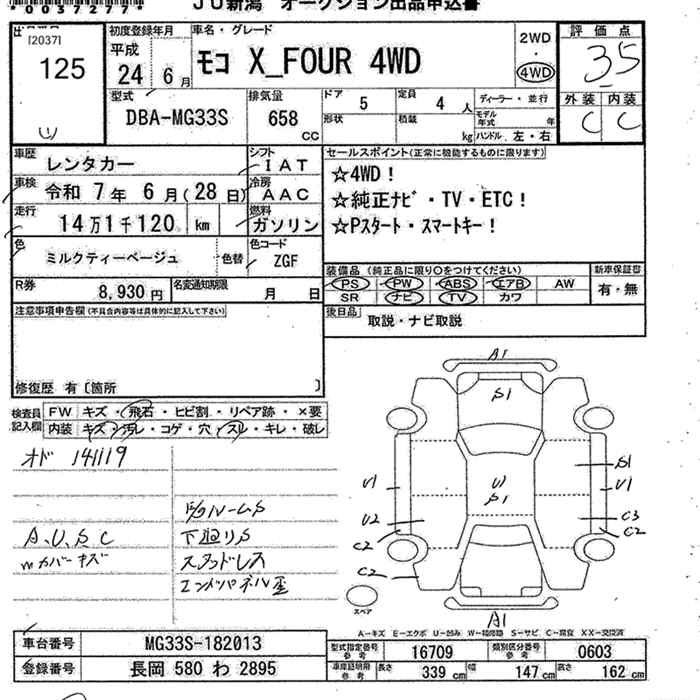 *0037277*
JU新潟 オークション出品申込書
[2037]
125
初度登録年月
平成
24年 6月
車名・グレード
モコ X_FOUR 4WD
2WD
・
4WD
評価点
3.5
外装 内装
C C
型式
DBA-MG33S
排気量
658
CC
ドア 5
形状
定員 4 人
積載 kg
ディーラー・並行
モデル年式 年
ハンドル 左・右
車歴 レンタカー
シフト IAT
車検 令和 7年 6月(28日)
冷房 AAC
走行 14万1千120 km
燃料 ガソリン
色 ミルクティーベージュ 色替
色コード ZGF
R券 8,930円
名変通知期限 月 日
セールスポイント(正常に機能するものに限ります)
☆4WD!
☆純正ナビ・TV・ETC!
☆Pスタート・スマートキー!
装備品(純正品に限り○をつけてください)
PS PW ABS エアB AW
SR ナビ TV カワ
新車保証書
有・無
後日品 取説・ナビ取説
注意事項申告欄(不具合内容等は具体的に記入して下さい)
修復歴 有〔箇所 〕
検査員記入欄
FW キズ・飛石・ヒビ割・リペア跡・×要
内装 キズ・汚レ・コゲ・穴・スレ・キレ・破レ
オド 141119
A.U.S.C
wカバーキズ
E/gルームS
下廻りS
スタッドレス
エンドパネル歪
A1
S1
U1
U S1
S1
U1
U2
C3
C2
C2
C2
A1
スペア
A-キズ E-エクボ U-凹み W-補修跡 S-サビ C-腐食 XX-交換済
車台番号 MG33S-182013
登録番号 長岡 580 わ 2895
型式指定番号 参考 16709
類別区分番号 参考 0603
車庫証明用 参考 長さ 339 cm 幅 147 cm 高さ 162 cm